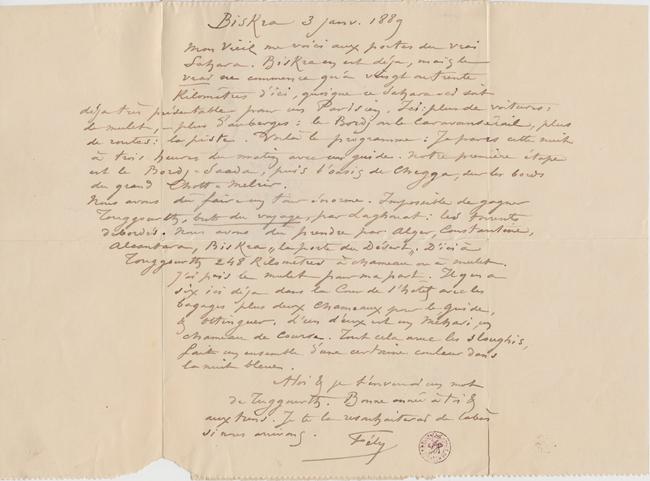 Biskra 3 janv. 1889
Mon Vieil me voici aux portes du vrai
Sahara. Biskra en est déjà, mais le
vrai ne commence qu'à vingt ou trente
Kilomètres d'ici, quoique ce Sahara ici soit
déjà très présentable pour un Parisien. Ici plus de voitures:
le mulet, – plus d'auberges: le Bordj ou le Caravansérail, plus
de routes: la piste. Voilà le programme: Je pars cette nuit
à trois heures du matin avec un guide. Notre première étape
est le Bordj-Saada, puis l'oasis de Chegga, sur les bords
du grand Chott-Melrir.
Nous avons dû faire un tour énorme. Impossible de gagner
Touggourth, but du voyage, par Laghouat: les torrents
débordés. Nous avons dû prendre par Alger, Constantine,
Alcantara, Biskra „la porte du Désert". D'ici à
Touggourth 248 Kilomètres à chameau ou à mulet.
J'ai pris le mulet pour ma part. Il y en a
six ici déjà dans la Cour de l'hotel avec les
bagages plus deux chameaux pour le guide,
& Ottinguer. L'un d'eux est un Méhari, un
chameau de course. Tout cela avec les sloughis,
fait un ensemble d'une certaine couleur dans
la nuit bleue.
A toi & je t'enverrai un mot
de Tuggourth. Bonne année à toi &
aux tiens. Je te la resouhaiterai de
si nous arrivons.
Fély